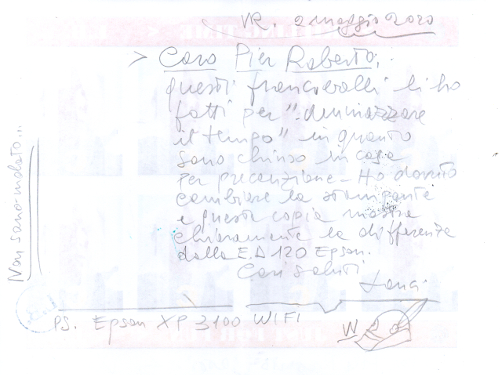 VR. 2 maggio 2020
> Caro Pier Roberto,
questi francobolli li ho
fatti per "
il tempo" in quanto
sono chiuso in casa
per precauzione - Ho dovuto
cambiare la stampante
e questa copia mostra
chiaramente la differenza
dalla E.D 120 Epson.
Cari saluti
PS. Epson XP 3100 WIFI
Non sono malato...